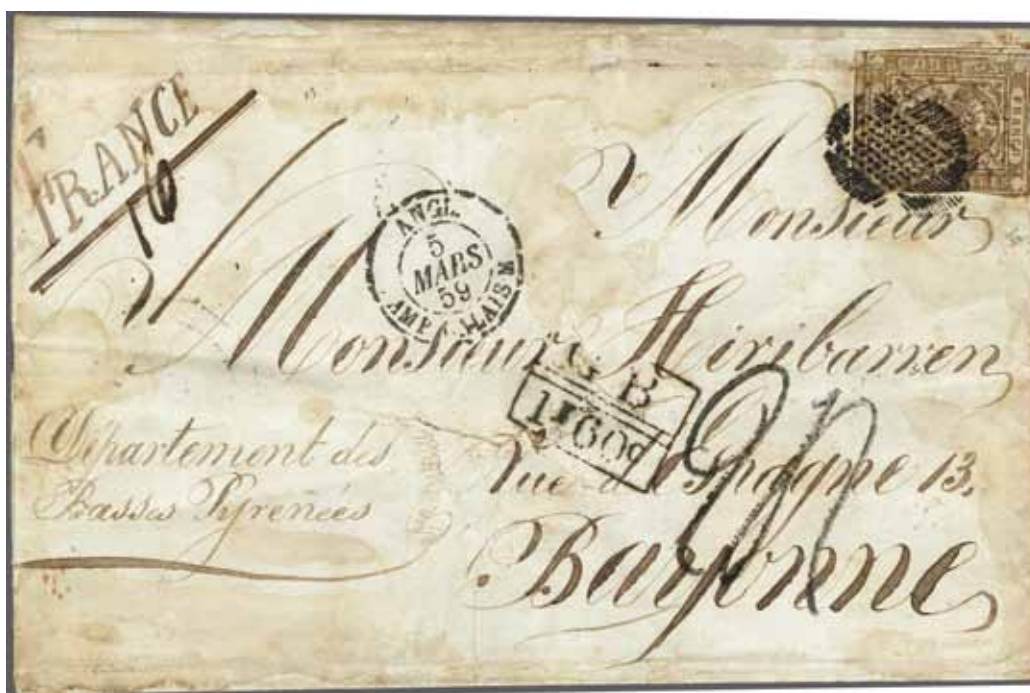 FRANCE
Monsieur
ANGL.
5
MARS
59
AMB. CALAIS M
Monsieur Hiribarren
G B
1F60c
Département des
Basses Pyrenées
Rue d'Espagne 13.
Bayonne